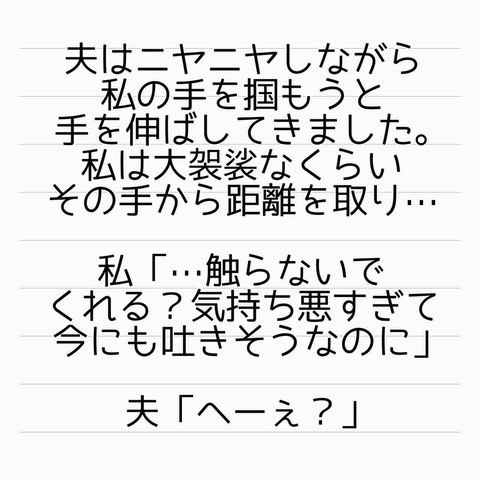 夫はニヤニヤしながら
私の手を掴もうと
手を伸ばしてきました。
私は大袈裟なくらい
その手から距離を取り…
私「…触らないで
くれる？気持ち悪すぎて
今にも吐きそうなのに」
夫「へーぇ？」